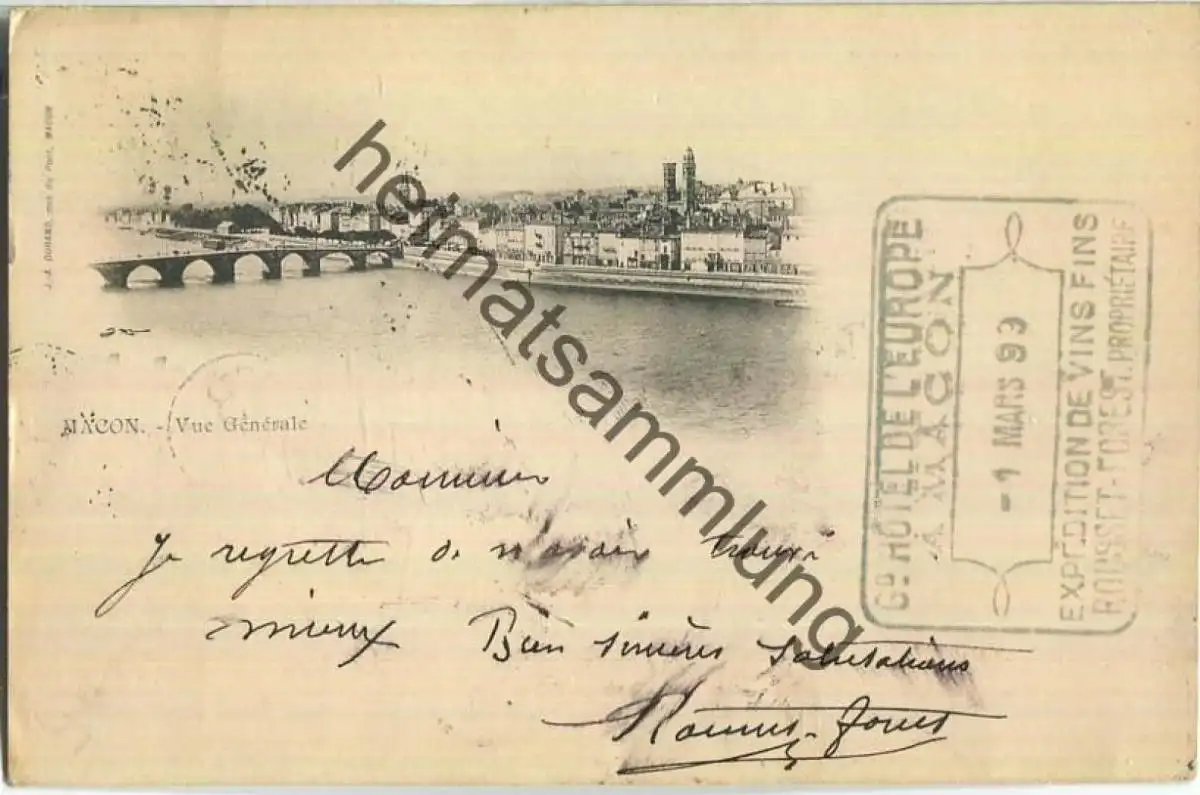 J.-A. DURAND, rue du Pont, MACON
MACON. - Vue Générale
heimatsammlung
Gd HÔTEL DE L'EUROPE
À MACON
- 1 MARS 99
EXPÉDITION DE VINS FINS
ROUSSET-FOREST. PROPRIÉTAIRE
Monsieur
Je regrette de n'avoir trouvé
mieux Bien sincères salutations
Rousset-Forest